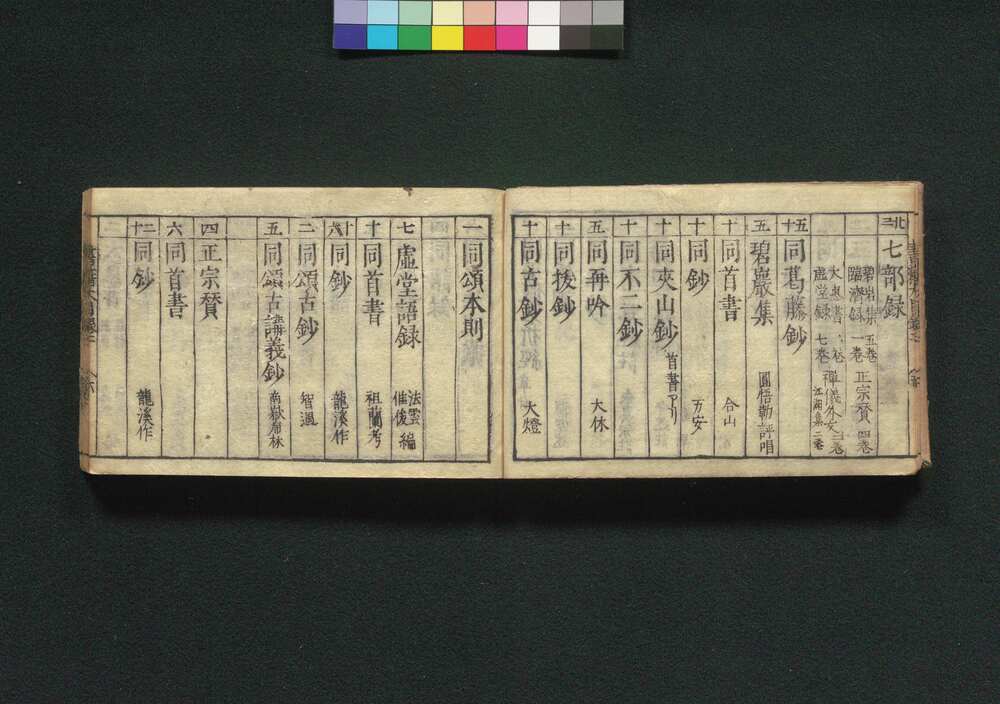 廿三 七部録
碧岩集 五巻 正宗賛 四巻
臨済録 一巻
大惠書 二巻 禅儀外文 二巻
虚堂録 七巻 江湖集 二巻
十五 同葛藤鈔
五 碧巖集 圓悟勤評唱
十 同首書 合山
十 同鈔 万安
十 同夾山鈔 首書アリ
十 同不二鈔
五 同再吟 大休
十 同抜鈔
十 同古鈔 大燈
一 同頌本則
七 虚堂語録 法雲 惟俊 編
十 同首書 祖蘭考
十六 同鈔 龍溪作
二 同頌古鈔 智遍
五 同頌古講義鈔 南嶽
四 正宗賛
六 同首書
十二 同鈔 龍溪作